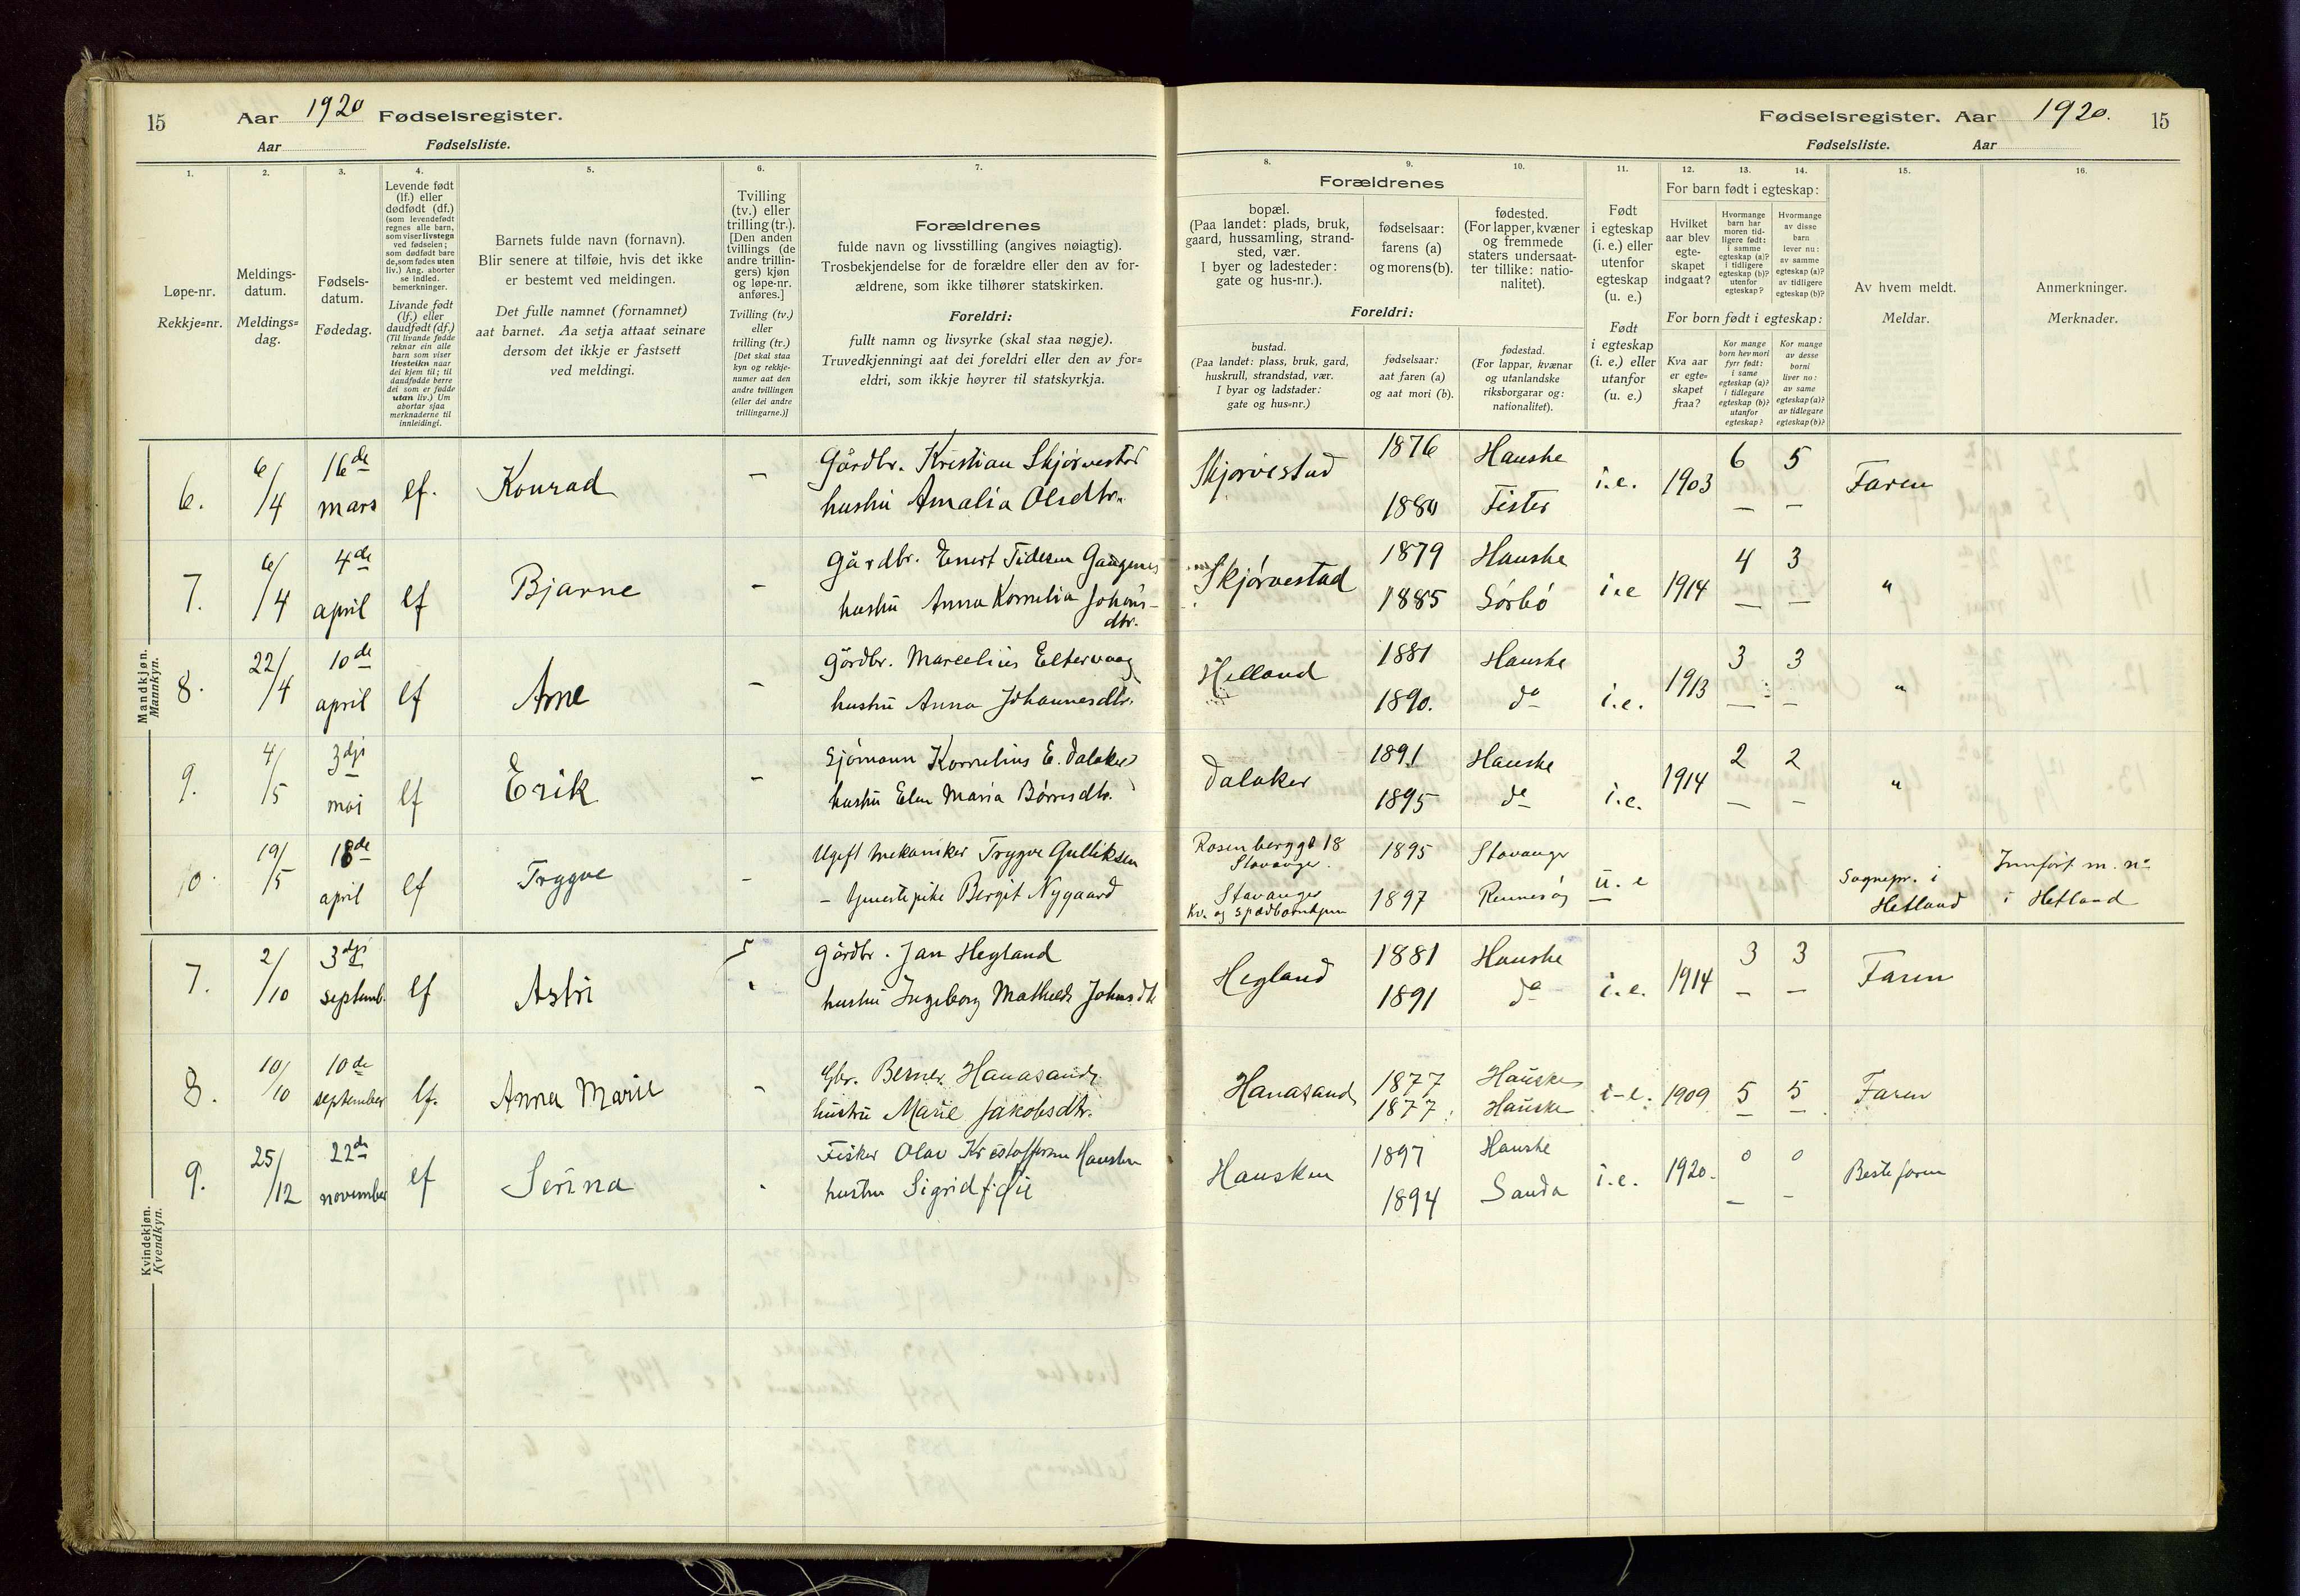 15
Aar 1920 Fødselsregister.
Aar Fødselsliste.
1.
2.
3.
4.
5.
6.
7.
Løpe-nr.
Rekkje=nr.
Meldings-
datum.
Meldings=
dag.
Fødsels-
datum.
Fødedag.
Levende født
(lf.) eller
dødfødt (df.)
(som levendefødt
regnes alle barn,
som viser livstegn
ved fødselen;
som dødfødt bare
de, som fødes uten
liv.) Ang. aborter
se indled.
bemerkninger.
Livande født
(lf.) eller
daudfødt (df.)
(Til livande fødde
reknar ein alle
barn som viser
livsteikn naar
dei kjem til; til
daudfødde berre
dei som er fødde
utan liv.) Um
abortar sjaa
merknaderne til
innleidingi.
Barnets fulde navn (fornavn).
Blir senere at tilføie, hvis det ikke
er bestemt ved meldingen.
Det fulle namnet (fornamnet)
aat barnet. Aa setja attaat seinare
dersom det ikkje er fastsett
ved meldingi.
Tvilling
(tv.) eller
trilling (tr.).
[Den anden
tvillings (de
andre trillin-
gers) kjøn
og løpe-nr.
anføres.]
Tvilling (tv.)
eller
trilling (tr.)
[Det skal staa
kyn og rekkje-
numer aat den
andre tvillingen
(eller dei andre
trillingarne.)]
Forældrenes
fulde navn og livsstilling (angives nøiagtig).
Trosbekjendelse for de forældre eller den av for-
ældrene, som ikke tilhører statskirken.
Foreldri:
fullt namn og livsyrke (skal staa nøgje).
Truvedkjenningi aat dei foreldri eller den av for=
eldri, som ikkje høyrer til statskyrkja.
Mandkjøn.
Mannkyn.
6. 6/4 16de mars lf. Konrad – Gårdbr. Kristian Skjørvestad
hustru Amalia Olsdtr.
7. 6/4 4de april lf Bjarne – Gårdbr. Enert Tidesen Gaugenes
hustru Anna Kornelia Johans-
dtr.
8. 22/4 10de april lf Arne – Gårdbr. Marcelius Eltervaag
hustru Anna Johannesdtr.
9. 4/5 3dje mai lf Erik – Sjømann Kornelius E. Dalaker
hustru Elen Maria Børresdtr.
10. 19/5 18de april lf Trygve – Ugift mekaniker Trygve Gulliksen
– tjenestepike Bergit Nygaard
7. 2/10 3dje septemb. lf Astri Gårdbr. Jan Hegland
hustru Ingeborg Mathilde Johnsdtr
8. 10/10 10de september lf. Anna Marie – Gbr. Berner Hanasand
hustru Marie Jakobsdtr.
9. 25/12 22de november lf Serina Fisker Olav Kristoffersen Hausken
hustru Sigrid
Kvindekjøn.
Kvendkyn.
Fødselsregister. Aar 1920. 15
Fødselsliste. Aar
8.
9.
10.
11.
12.
13.
14.
15.
16.
Forældrenes
bopæl.
(Paa landet: plads, bruk,
gaard, hussamling, strand-
sted, vær.
I byer og ladesteder:
gate og hus-nr.).
fødselsaar:
farens (a)
og morens (b).
fødested.
(For lapper, kvæner
og fremmede
staters undersaat-
ter tillike: natio-
nalitet).
Foreldri:
bustad.
(Paa landet: plass, bruk, gard,
huskrull, strandstad, vær.
I byar og ladstader:
gate og hus=nr.)
fødselsaar:
aat faren (a)
og aat mori (b).
fødestad.
(For lappar, kvænar
og utanlandske
riksborgarar og:
nationalitet).
Født
i egteskap
(i. e.) eller
utenfor
egteskap
(u. e.)
Født
i egteskap
(i. e.) eller
utanfor
(u. e.)
For barn født i egteskap:
Hvilket
aar blev
egte-
skapet
indgaat?
Hvormange
barn har
moren tid-
ligere født:
i samme
egteskap (a)?
i tidligere
egteskap (b)?
utenfor
egteskap?
Hvormange
av disse
barn
lever nu:
av samme
egteskap (a)?
av tidligere
egteskap (b)?
For born født i egteskap:
Kva aar
er egte=
skapet
fraa?
Kor mange
born hev mori
fyrr født:
i same
egteskap (a)?
i tidlegare
egteskap (b)?
utanfor
egteskap?
Kor mange
av desse
borni
liver no:
av same
egteskap (a)?
av tidlegare
egteskap (b)?
Av hvem meldt.
Meldar.
Anmerkninger.
Merknader.
Skjørvestad 1876 Hauske i.e. 1903 6 5 Faren
1880 Fister – –
Skjørvestad 1879 Hauske i.e 1914 4 3 "
1885 Sørbø – –
Helland 1881 Hauske 1913 3 3 "
1890. do i.e. – –
Dalaker 1891 Hauske 1914 2 2 "
1895 do i.e. – –
Rosenberggt 18 1895 Stavanger
Stavanger. u. e Sognepr. i Innført m. no
Stavanger 1897 Rennesøy Hetland i Hetland
Kv. og spædbarnhjem
Hegland 1881 Hauske 1914 3 3 Faren
1891 do i.e. – –
Hanasand 1877 Hauske i-e. 1909 5 5 Faren
1877 Hauske – –
Hausken 1897 Hauske i.e. 1920. 0 0 Bestefaren
1894 Sauda – –